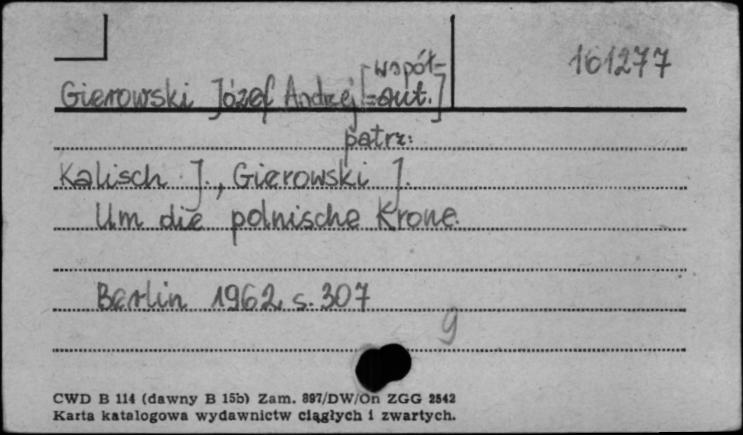 161277
Gierowski Józef Andrzej [współ-
=aut.]
patrz:
Kalisch J., Gierowski J.
Um die polnische Krone.
Berlin 1962 s. 307
9
CWD B 114 (dawny B 15b) Zam. 897/DW/On ZGG 2542
Karta katalogowa wydawnictw ciągłych i zwartych.